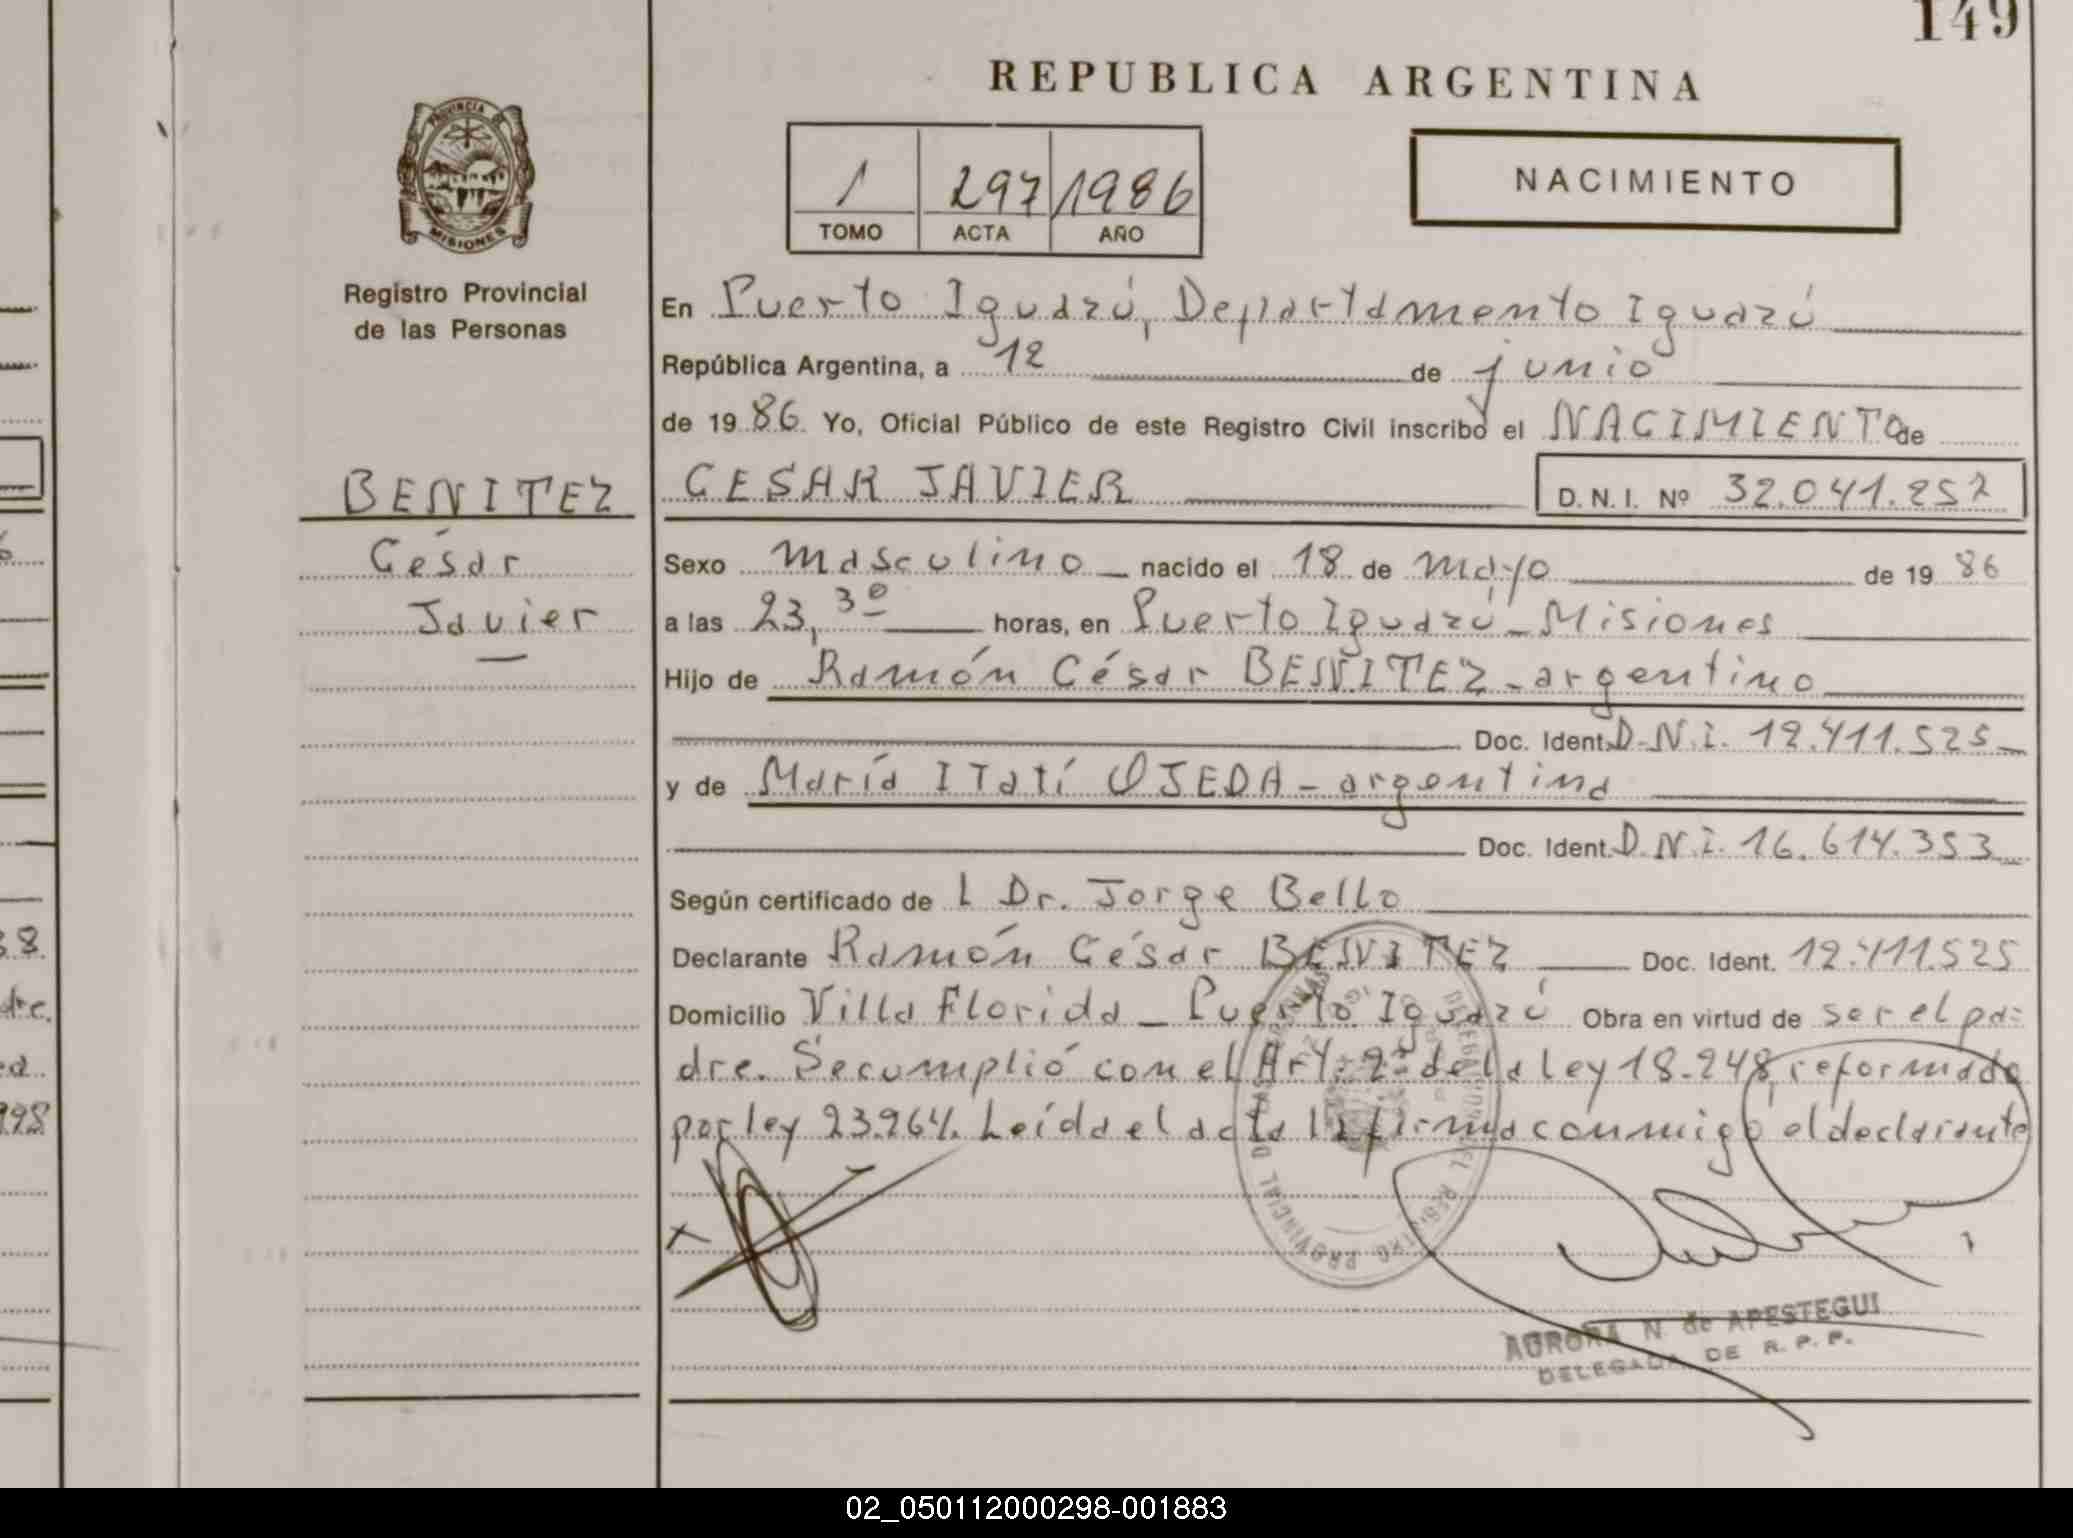 149
REPUBLICA ARGENTINA
PROVINCIA DE
MISIONES
Registro Provincial
de las Personas
1 297 1986
TOMO ACTA AÑO
NACIMIENTO
En Puerto Iguazú, Departamento Iguazú
República Argentina, a 12 de junio
de 1986 Yo, Oficial Público de este Registro Civil inscribo el NACIMIENTO de
BENITEZ
César
Javier
CESAR JAVIER D.N.I. Nº 32.041.257
Sexo masculino nacido el 18 de mayo de 1986
a las 23,30 horas, en Puerto Iguazú - Misiones
Hijo de Ramón César BENITEZ - argentino
Doc. Ident. D.N.I. 12.411.525
y de María Itatí OJEDA - argentina
Doc. Ident. D.N.I. 16.614.353
Según certificado de l Dr. Jorge Bello
Declarante Ramón César BENITEZ Doc. Ident. 12.411.525
Domicilio Villa Florida - Puerto Iguazú Obra en virtud de ser el pa=
dre. Se cumplió con el Art. 2º de la Ley 18.248, reformada
por ley 23.264. Leída el acta la firma conmigo el declarante
X
AURORA N. de APESTEGUI
DELEGADA DE R. P. P.
02_050112000298-001883